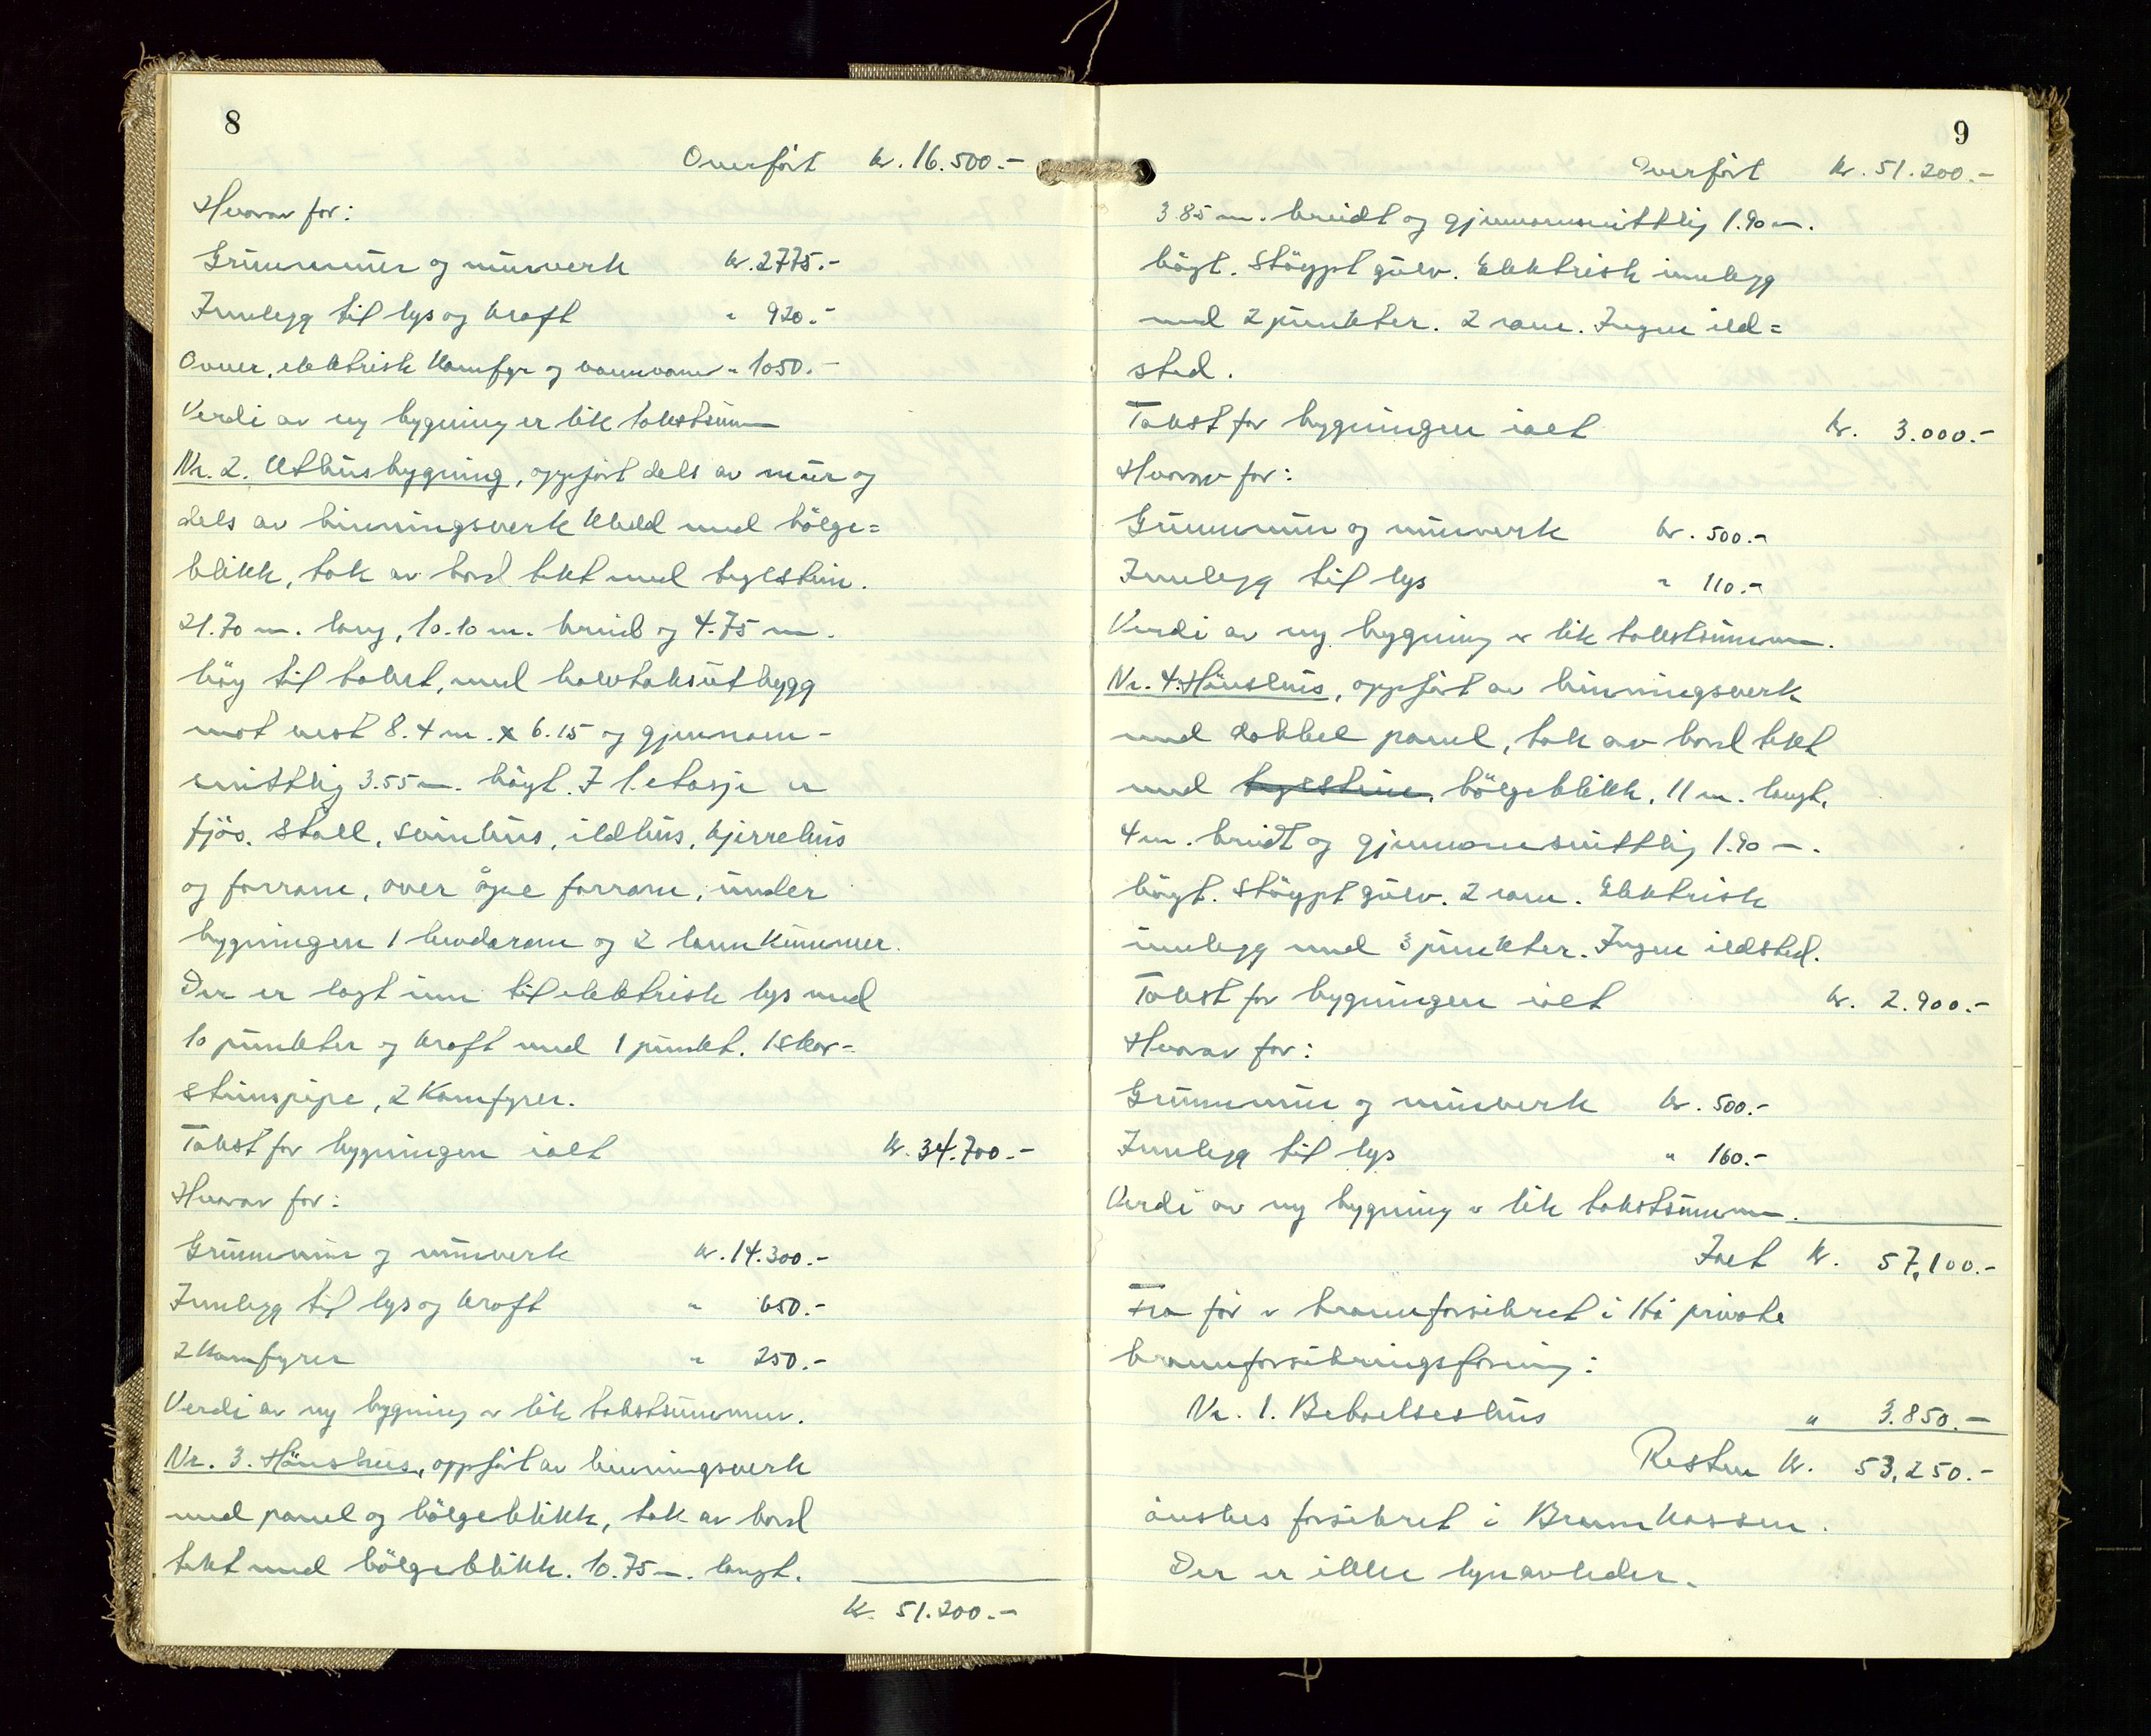 8
Overfört kr. 16.500.-
Hvorav for:
Grunnmur og murverk kr. 2775.-
Innlegg til lys og kraft " 920.-
Ovner, elektrisk komfyr og vannvarmer " 1050.-
Verdi av ny bygning er lik takstsummen
Nr. 2. Uthusbygning, oppfört dels av mur og
dels av binningsverk kledd med bölge=
blikk, tak av bord tekt med teglstein.
21.70 m. lang, 10.10 m. breid og 4.75 m.
höy til taket, med halvtaksutbygg
mot vest 8.4 m. x 6.15 og gjennom-
snittlig 3.55 m. höyt. I 1. etasje er
fjös, stall, svinhus, ildhus, kjerrehus
og forrom, over åpne forrom, under
bygningen 1 landkum og 2 landkummer.
Der er lagt inn til elektrisk lys med
10 punkter og kraft med 1 punkt. 1 skor-
stinspipe, 2 Komfyrer.
Takst for bygningen ialt kr. 34.700.-
Hvorav for:
Grunnmur og murverk kr. 14.300.-
Innlegg til lys og kraft " 650.-
2 Komfyrer " 250.-
Verdi av ny bygning er lik takstsummen.
Nr. 3. Hönshus, oppfört av binningsverk
med panel og bölgeblikk, tak av bord
tekt med bölgeblikk. 10.75 m. langt.
kr. 51.200.-
9
Overfört kr. 51.200.-
3 85 m. breidt og gjennomsnittlig 1.90 m.
höyt. Stöypt gulv. Elektrisk innlegg
med 2 punkter. 2 rom. Ingen ild=
sted.
Takst for bygningen ialt kr. 3.000.-
Hvorav for:
Grunnmur og murverk kr. 500.-
Innlegg til lys " 110.-
Verdi av ny bygning er lik takstsummen.
Nr. 4. Hönshus, oppfört av binningsverk
med dobbel panel, tak av bord tekt
med teglstein, bölgeblikk, 11 m. langt,
4 m. breidt og gjennomsnittlig 1.90 m.
höyt. Stöypt gulv. 2 rom. Elektrisk
innlegg med 3 punkter. Ingen ildsted.
Takst for bygningen ialt kr. 2.900.-
Hvorav for:
Grunnmur og murverk kr. 500.-
Innlegg til lys " 160.-
Verdi av ny bygning er lik takstsummen.
Ialt kr. 57,100.-
Fra för er brannforsikret i Hå private
brannforsikringsforening:
Nr. 1. Beboelseshus " 3.850.-
Resten kr. 53,250.-
önskes forsikret i Brannkassen.
Der er ikke lynavleder.